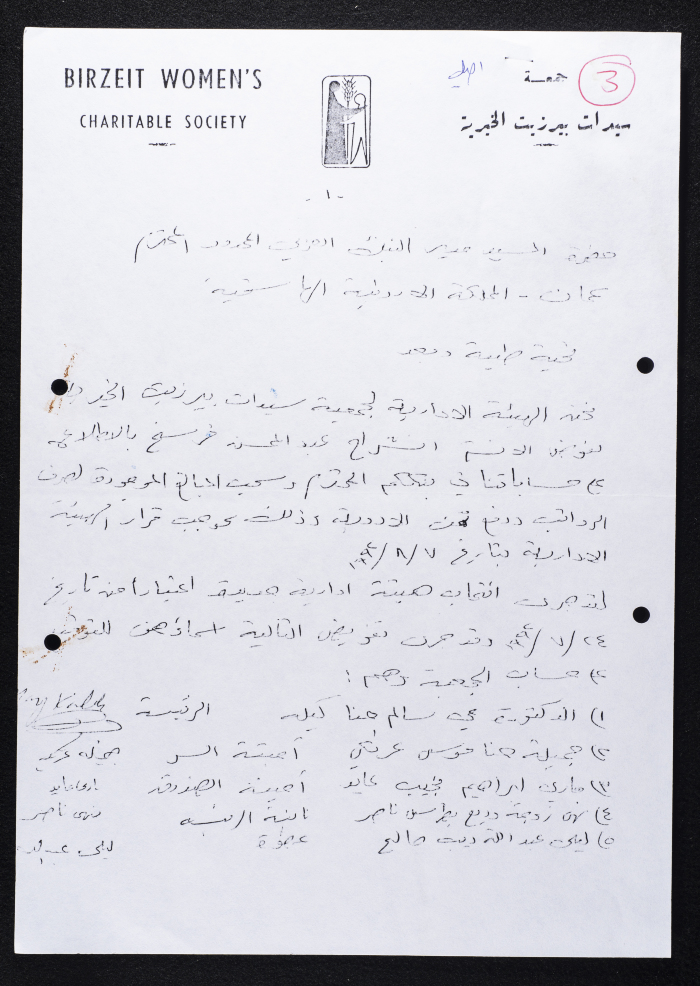 BIRZEIT WOMEN'S
CHARITABLE SOCIETY
جمعية
3
سيدات بيرزيت الخيرية
- ١ -
حضرة السيد مدير البنك العربي المحدود المحترم
عمان - المملكة الاردنية الهاشمية
تحية طيبة وبعد
نحن الهيئة الادارية لجمعية سيدات بيرزيت الخيرية
نفوض الآنسة انشراح عبد المحسن بالاطلاع
على حساباتنا في بنككم المحترم وسحب المبالغ الموجودة لصرف
الرواتب ودفع ثمن الادوية وذلك بموجب قرار الهيئة
الادارية بتاريخ ٧/٨/
لقد جرى انتخاب هيئة ادارية جديدة اعتبارا من تاريخ
٢٤/٧/ وقد جرى تفويض التالية اسماؤهن للتوقيع
على حساب الجمعية وهم :
١) الدكتورة مي سالم حنا كيله الرئيسة
٢) جميلة حنا موسى عرنكي أمينة السر
٣) ماري ابراهيم نجيب عايد أمينة الصندوق
٤) نهى زوجة وديع بطرس ناصر نائبة الرئيسة نهى ناصر
٥) ليلى عبد الله ديب صالح عضوة ليلى عبدالله